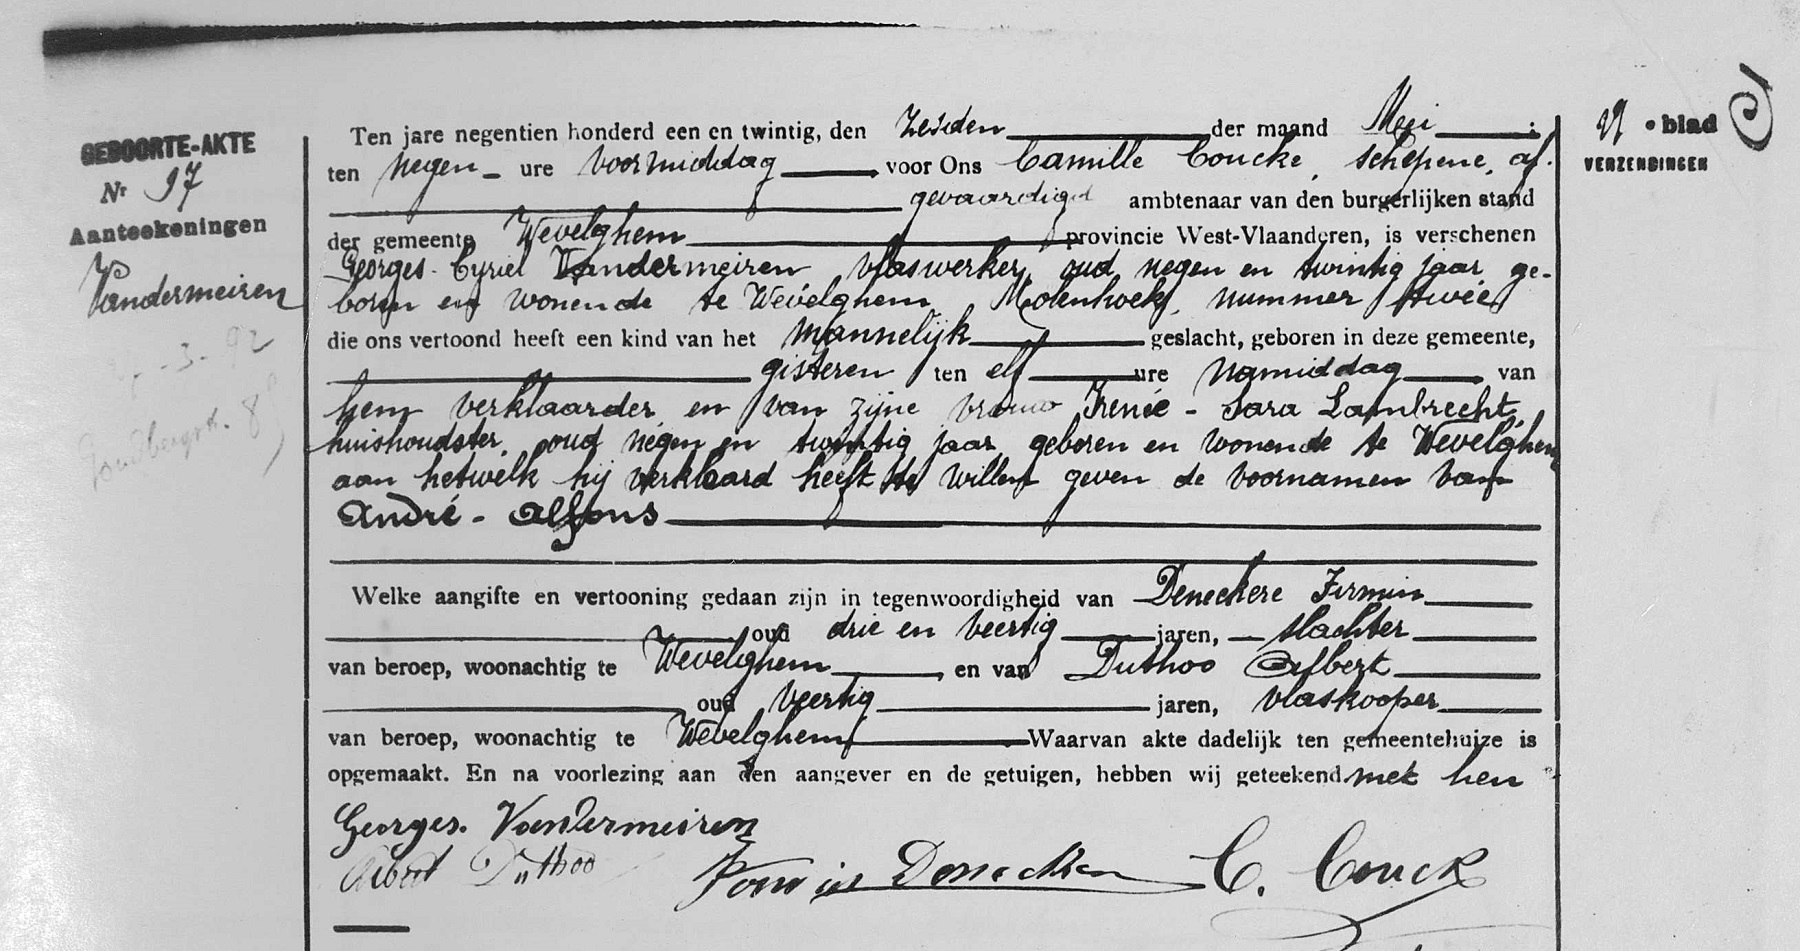 GEBOORTE-AKTE
Nr 97
Aanteekeningen
Vandermeiren
-3-92
Ten jare negentien honderd een en twintig, den zesden der maand Mei ;
ten negen ure voormiddag voor Ons Camille Coucke, schepene, af-
gevaardigd ambtenaar van den burgerlijken stand
der gemeente Wevelghem provincie West-Vlaanderen, is verschenen
Georges-Cyriel Vandermeiren, vlaswerker, oud negen en twintig jaar, ge-
boren en wonende te Wevelghem, Molenhoek, nummer twee,
die ons vertoond heeft een kind van het mannelijk geslacht, geboren in deze gemeente,
gisteren ten elf ure namiddag van
hem verklaarder en van zijne vrouw Irenée-Sara Lambrecht,
huishoudster, oud negen en twintig jaar geboren en wonende te Wevelghem
aan hetwelk hij verklaard heeft te willen geven de voornamen van
André-Alfons
Welke aangifte en vertooning gedaan zijn in tegenwoordigheid van Deneckere Firmin
oud drie en veertig jaren, slachter
van beroep, woonachtig te Wevelghem, en van Duthoo Albert
oud veertig jaren, vlaskooper
van beroep, woonachtig te Wevelghem Waarvan akte dadelijk ten gemeentehuize is
opgemaakt. En na voorlezing aan den aangever en de getuigen, hebben wij geteekend met hen
Georges Vandermeiren
Albert Duthoo Firmin Deneckere C. Coucke
blad
VERZENDINGEN